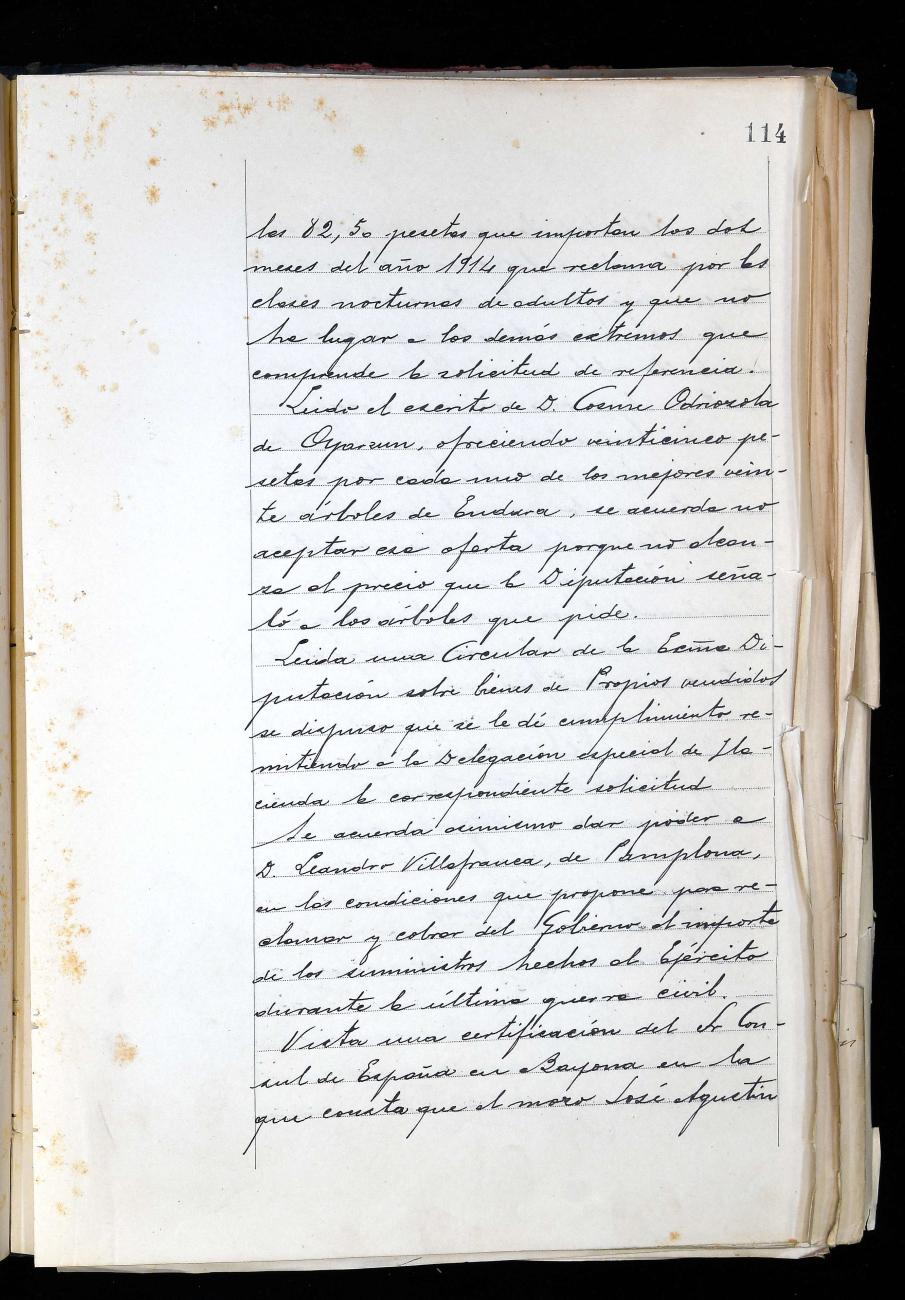 114
las 82,50 pesetas que importan los dos
meses del año 1914 que reclama por las
clases nocturnas de adultos y que no
ha lugar a los demás extremos que
comprende la solicitud de referencia.
Leido el escrito de D. Cosme Odriozola
de Oyarzun, ofreciendo veinticinco pe-
setas por cada uno de los mejores vein-
te árboles de Endara, se acuerda no
aceptar esa oferta porque no alcan-
za al precio que la Diputación seña-
ló a los árboles que pide.
Leida una Circular de la Excma Di-
putación sobre bienes de Propios vendidos
se dispuso que se le dé cumplimiento re-
mitiendo a la Delegación especial de Ha-
cienda la correspondiente solicitud
Se acuerda asimismo dar poder a
D. Leandro Villafranca, de Pamplona,
en las condiciones que propone para re-
clamar y cobrar del Gobierno el importe
de los suministros hechos al Ejército
durante la última guerra civil.
Vista una certificación del Sr Con-
sul de España en Bayona en la
que consta que el mozo José Agustin